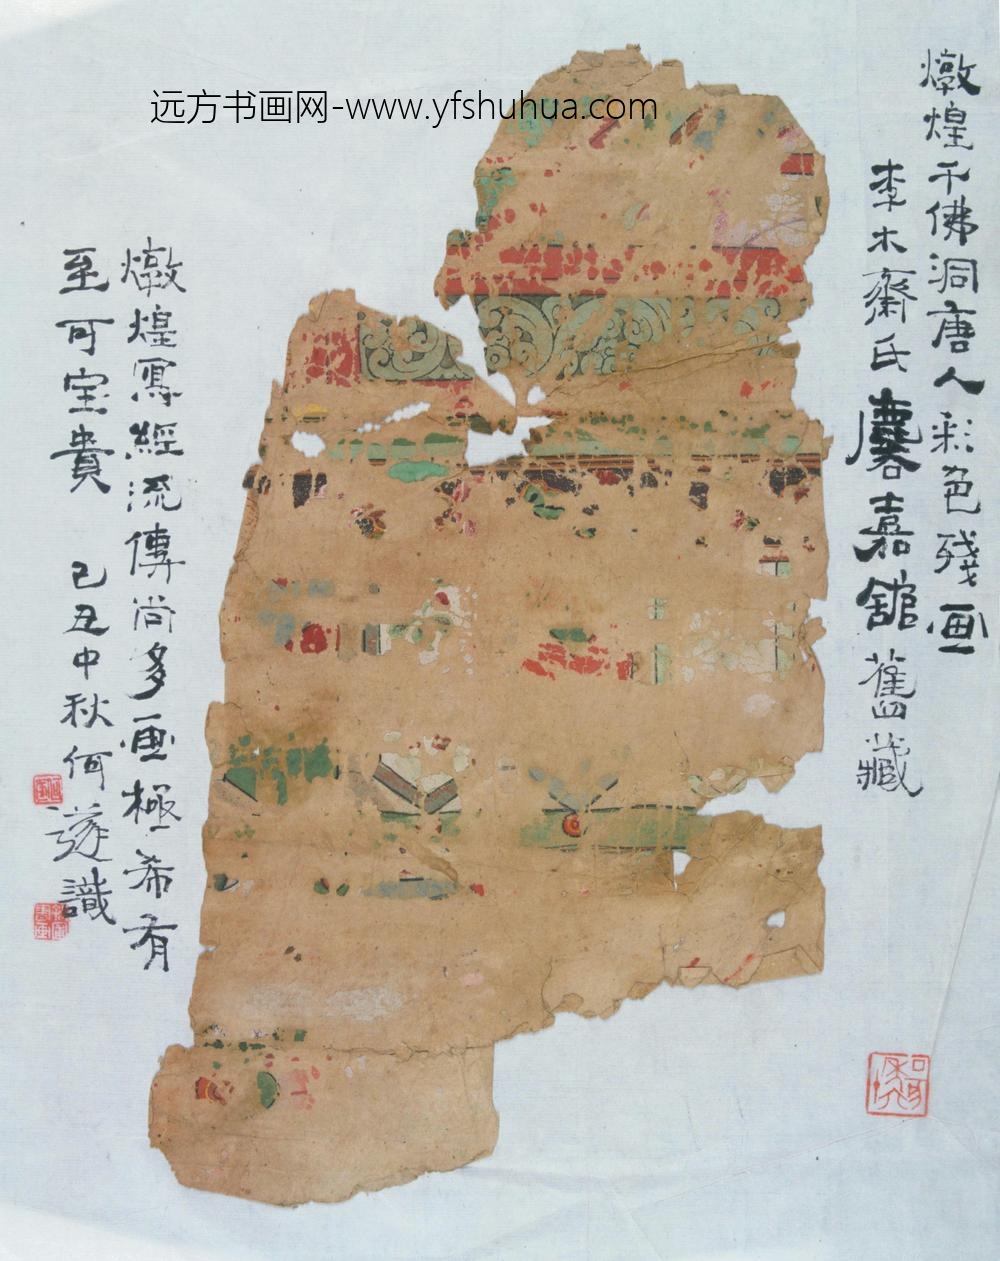 远方书画网-www.yfshuhua.com
燉煌千佛洞唐人彩色殘画
李木齋氏麐嘉館舊藏
燉煌寫經流傳尚多画極希有
至可宝貴 己丑中秋何遂識